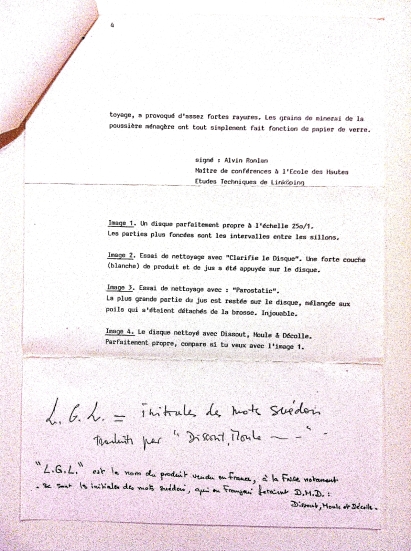 4
toyage, a provoqué d'assez fortes rayures. Les grains de minerai de la
poussière ménagère ont tout simplement fait fonction de papier de verre.
signé : Alvin Ronlan
Maître de conférences à l'Ecole des Hautes
Etudes Techniques de Linköping
Image 1. Un disque parfaitement propre à l'échelle 250/1.
Les parties plus foncées sont les intervalles entre les sillons.
Image 2. Essai de nettoyage avec "Clarifie le Disque". Une forte couche
(blanche) de produit et de jus a été appuyée sur le disque.
Image 3. Essai de nettoyage avec : "Parostatic".
La plus grande partie du jus est restée sur le disque, mélangée aux
poils qui s'étaient détachés de la brosse. Injouable.
Image 4. Le disque nettoyé avec Dissout, Moule & Décolle.
Parfaitement propre, compare si tu veux avec l'image 1.
L. G. L. = initiales des mots suédois
traduits par "Dissout, Moule - - "
"L.G.L." est le nom du produit vendu en France, à la FNAC notamment
- ce sont les initiales des mots suédois, qui en Français feraient D.M.D. :
Dissout, Moule et Décolle.